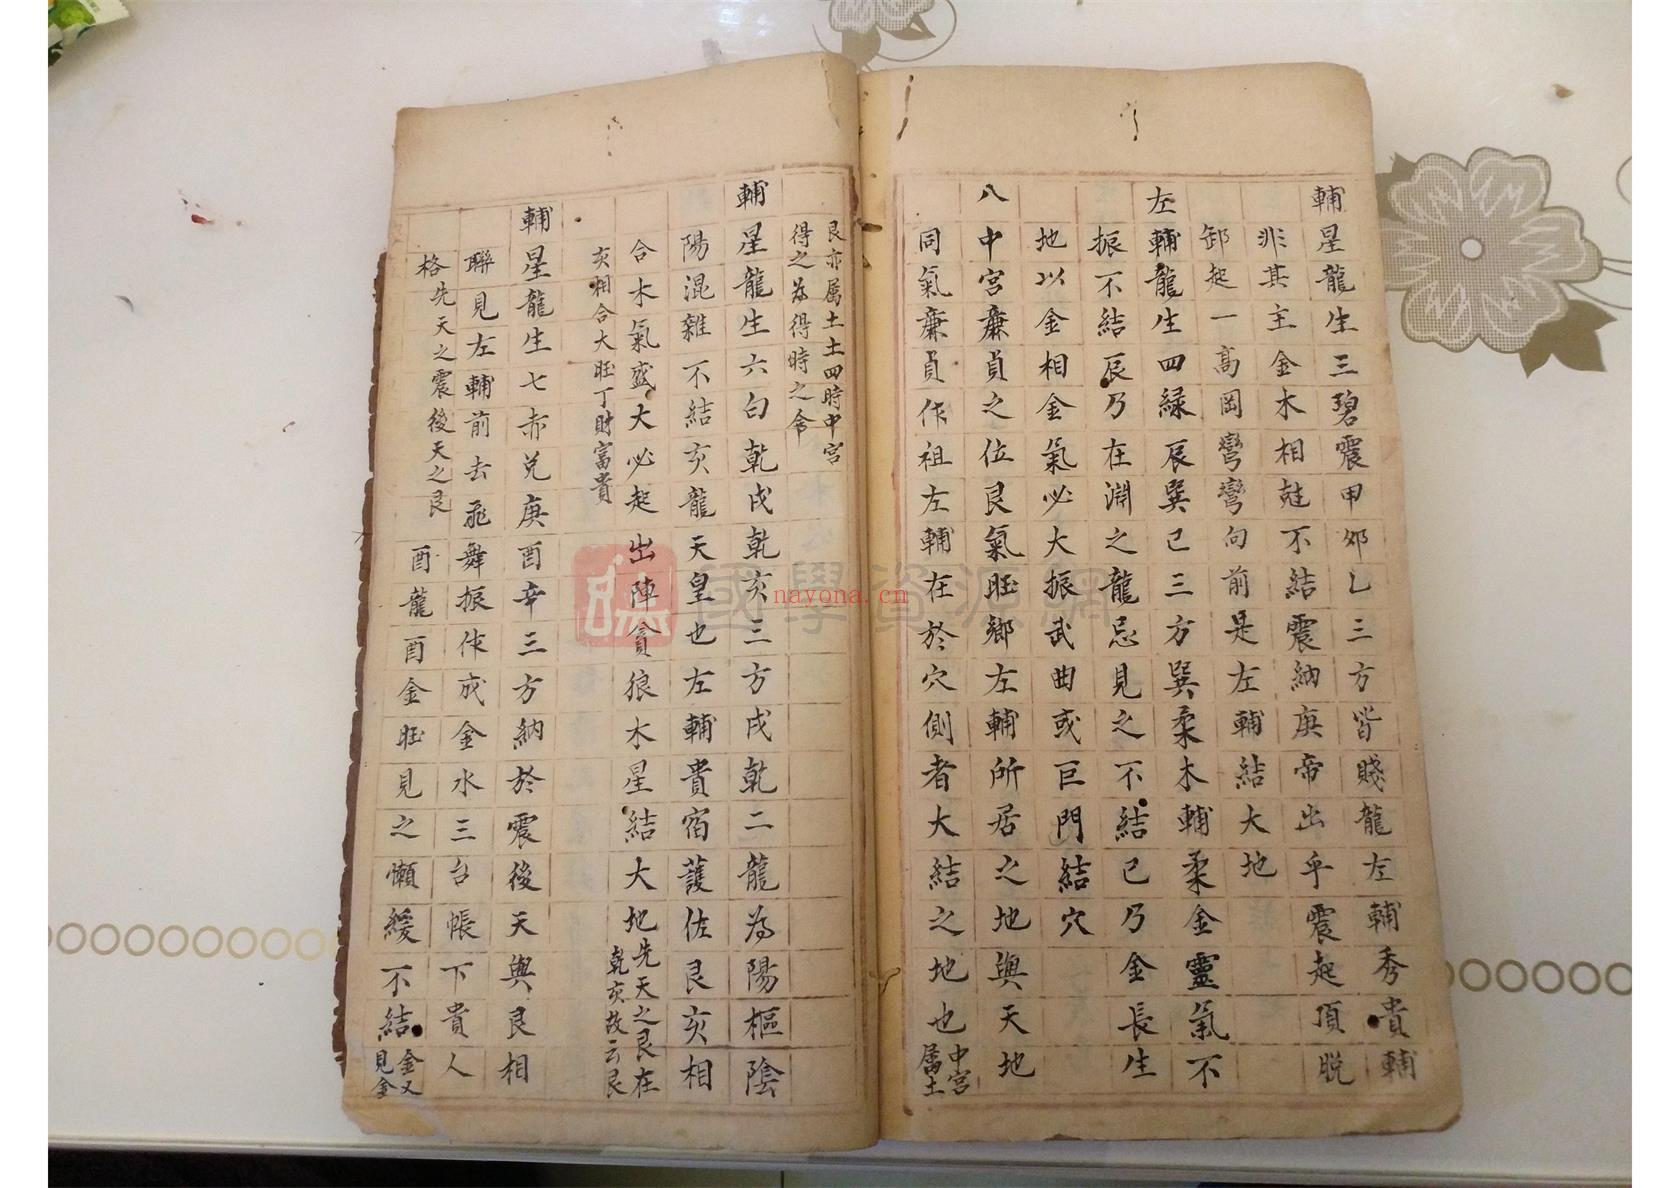 輔星龍生三碧震甲卯乙三方皆賤龍左輔秀貴輔
非其主金木相尅不結震納庚帝出乎震起頂脫
卸起一高岡彎彎向前是左輔結大地
左輔龍生四緑辰巽巳三方巽柔木輔柔金靈氣不
振不結辰乃在淵之龍忌見之不結巳乃金長生
地以金相金氣必大振武曲或巨門結穴
八中宮廉貞之位艮氣旺鄉左輔所居之地與天地
同氣廉貞作祖左輔在於穴側者大結之地也中宮
属土
艮亦属土土四時中宮
得之為得時之令
輔星龍生六白乾戌乾亥三方戌乾二龍為陽樞陰
陽混雜不結亥龍天皇也左輔貴宿護佐艮亥相
合木氣盛大必起出陣貪狼木星結大地先天之艮在
乾亥故云艮
亥相合大旺丁財富貴
輔星龍生七赤兌庚酉辛三方納於震後天與艮相
聯見左輔前去飛舞振作成金水三台帳下貴人
格先天之震後天之艮 酉龍酉金旺見之懶緩不結金又
見金
國學資源網
nayona.cn